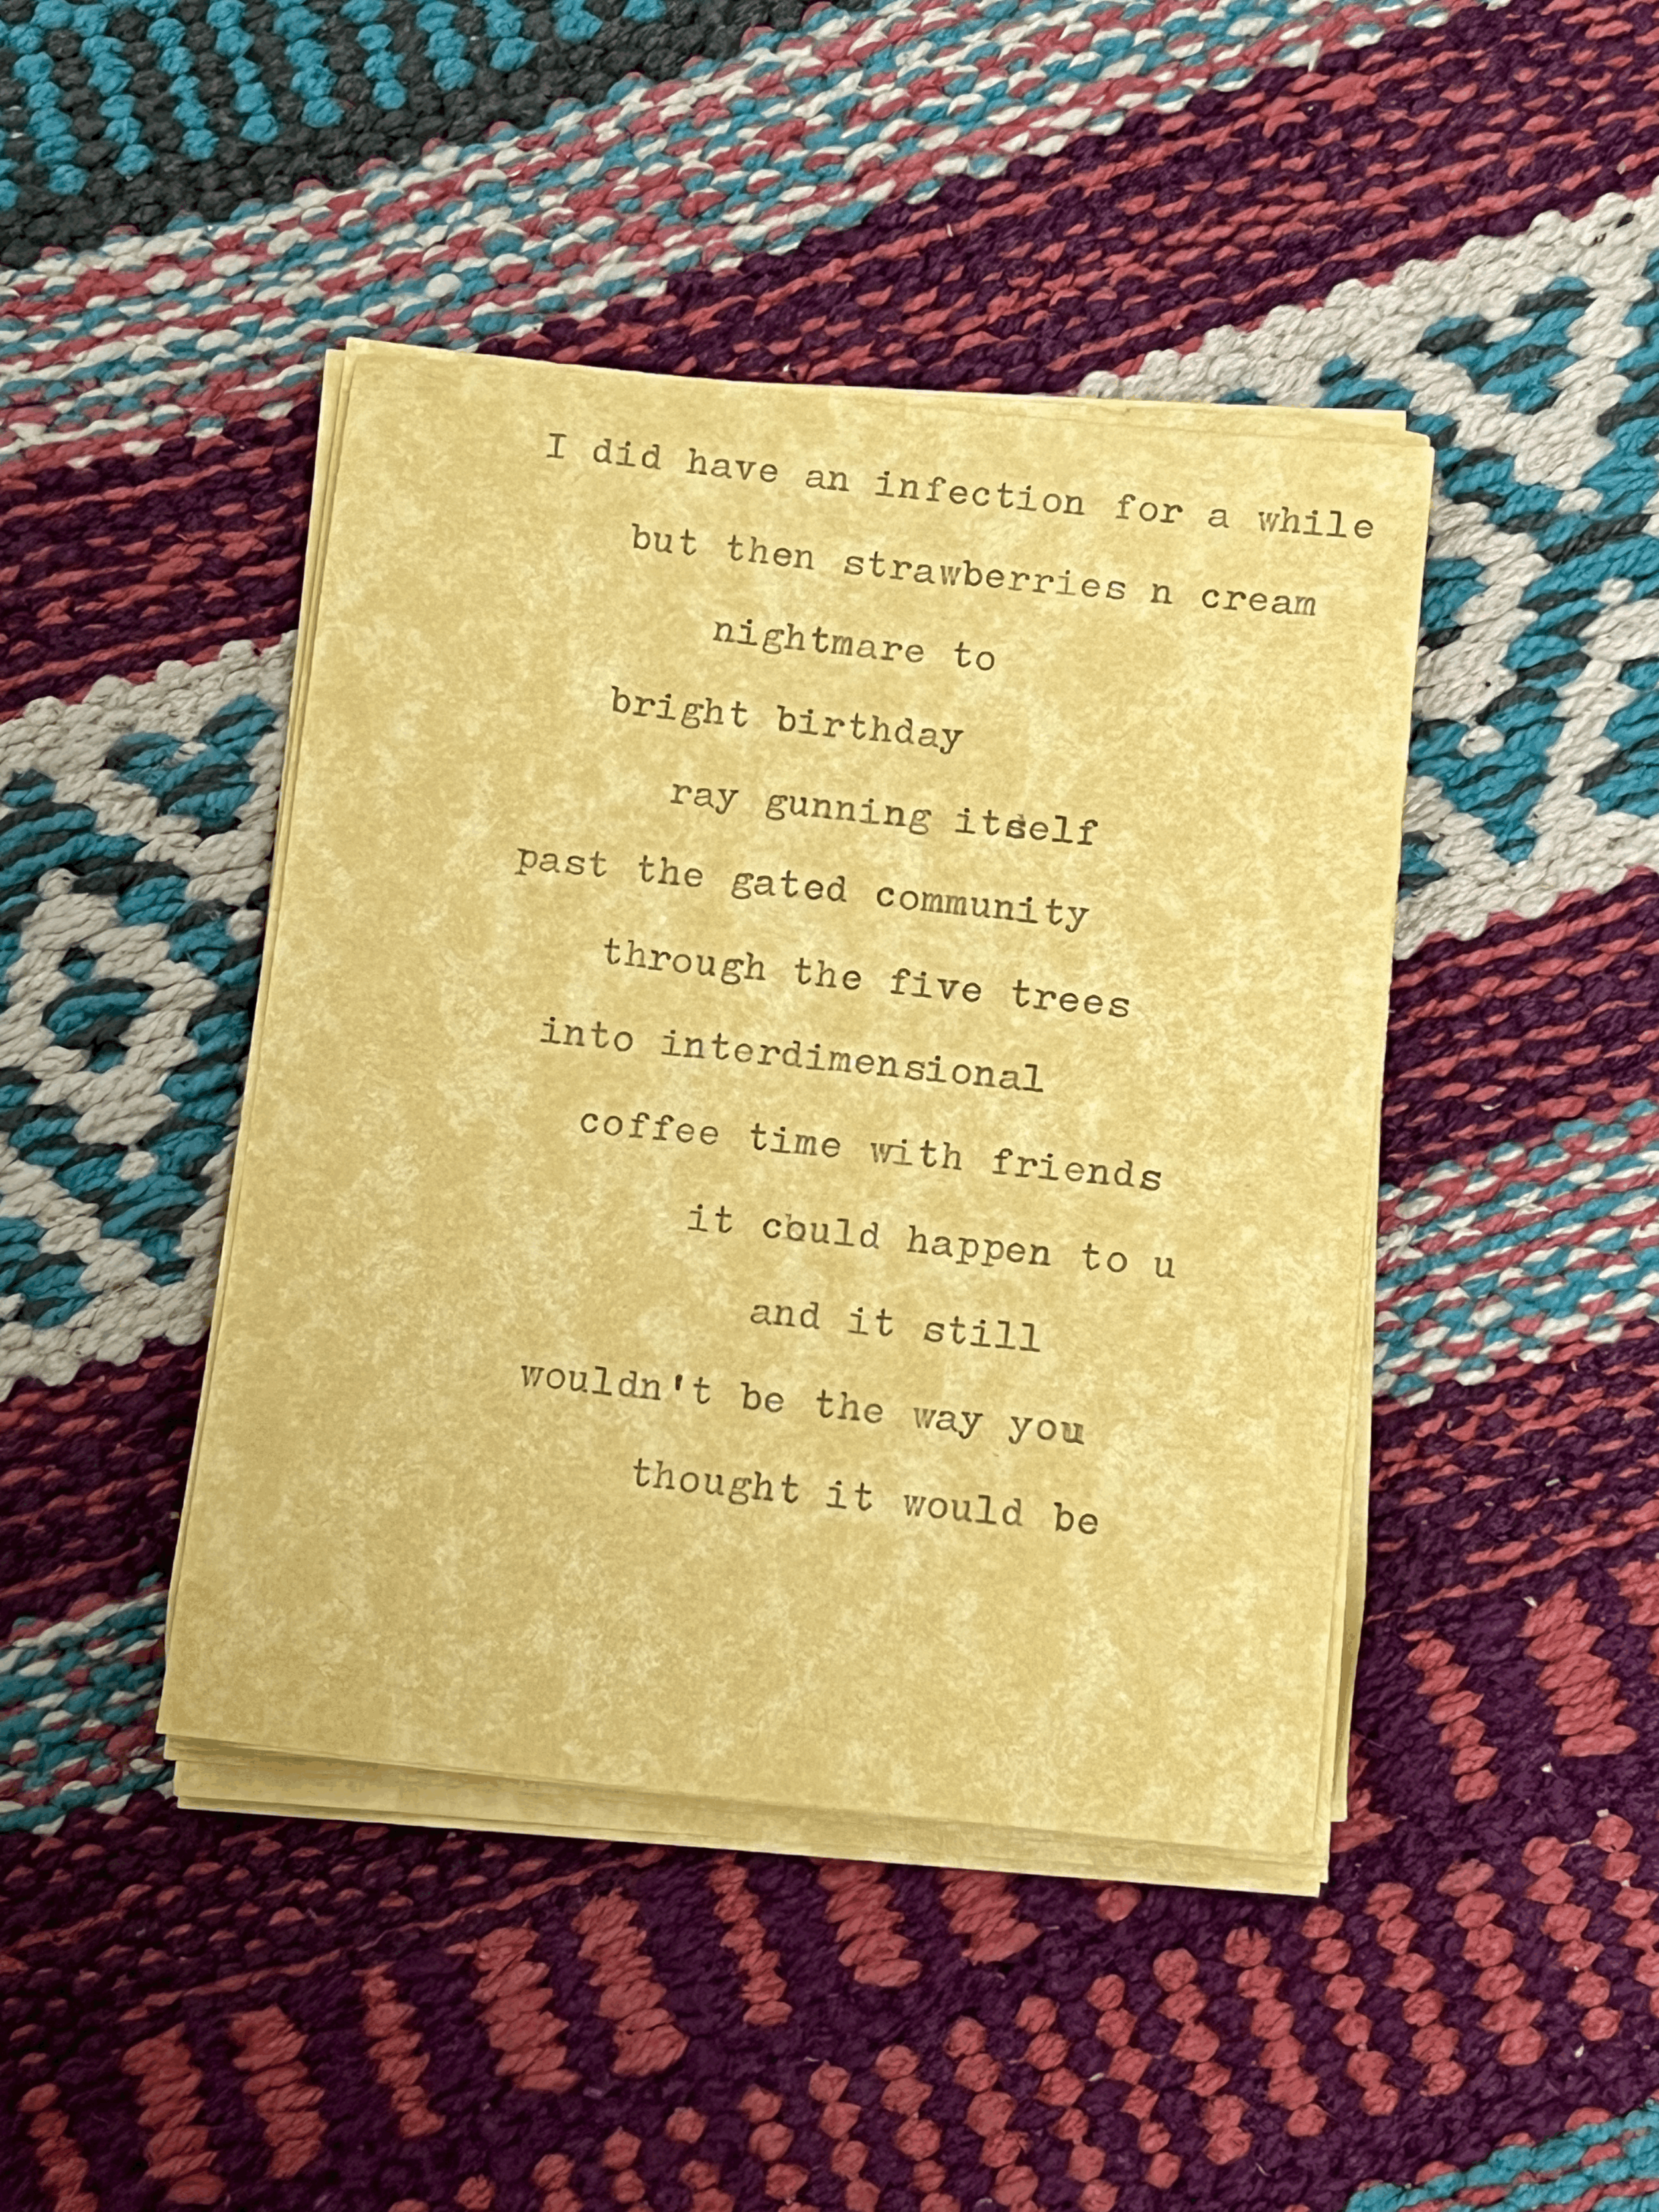 I did have an infection for a while
but then strawberries n cream
nightmare to
bright birthday
ray gunning itself
past the gated community
through the five trees
into interdimensional
coffee time with friends
it could happen to u
and it still
wouldn't be the way you
thought it would be